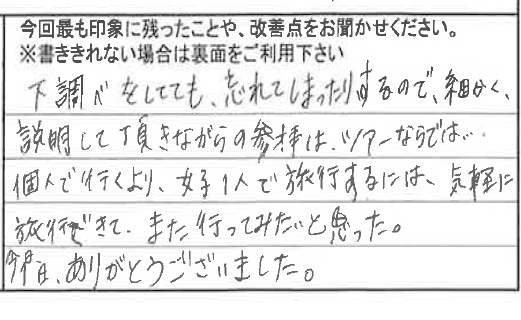 今回最も印象に残ったことや、改善点をお聞かせください。
※書ききれない場合は裏面をご利用下さい
下調べをしてても、忘れてしまったりするので、細かく、
説明して頂きながらの参拝は、ツアーならでは…
個人で行くより、女子1人で旅行するには、気軽に
旅行できて、また行ってみたいと思った。
今日、ありがとうございました。